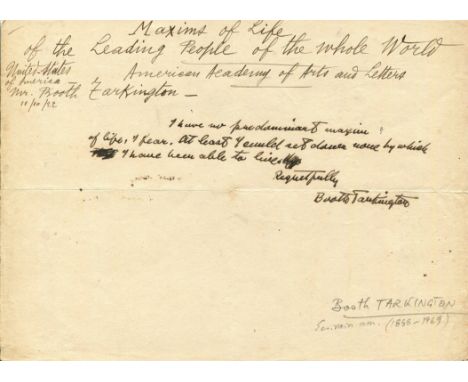 Maxims of Life
of the Leading People of the whole World
United States
of America
American Academy of Arts and Letters
Mr. Booth Tarkington —
11/10/22
I have no predominant maxim
of life, I fear. At least I could set down none by which
I have been able to live.
Regretfully
Booth Tarkington
Booth TARKINGTON
Ecrivain am. (1869-1969)